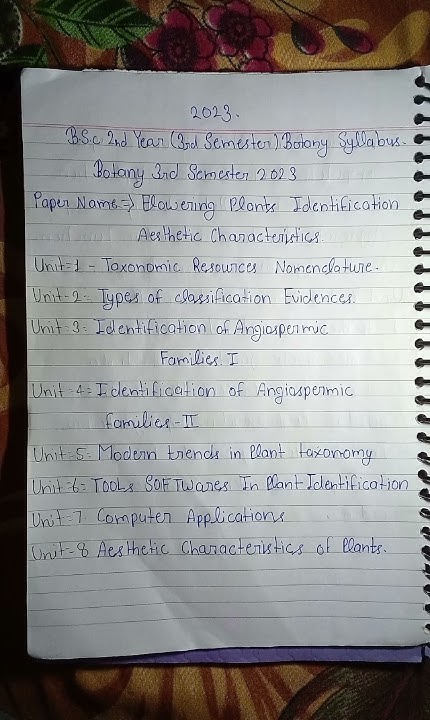 2023.
B.S.c 2nd Year (3rd Semester) Botany Syllabus.
Botany 3rd Semester 2023
Paper Name ⇒ Flowering Plants Identification
Aesthetic Characteristics.
Unit-1 - Taxonomic Resources Nomenclature.
Unit-2 = Types of classification Evidences.
Unit-3 = Identification of Angiospermic
Families. I
Unit-4 = Identification of Angiospermic
families - II
Unit-5 = Modern trends in Plant taxonomy
Unit-6 = TOOLs SOFTWares In Plant Identification
Unit-7 Computer Applications
Unit-8 Aesthetic Characteristics of Plants.